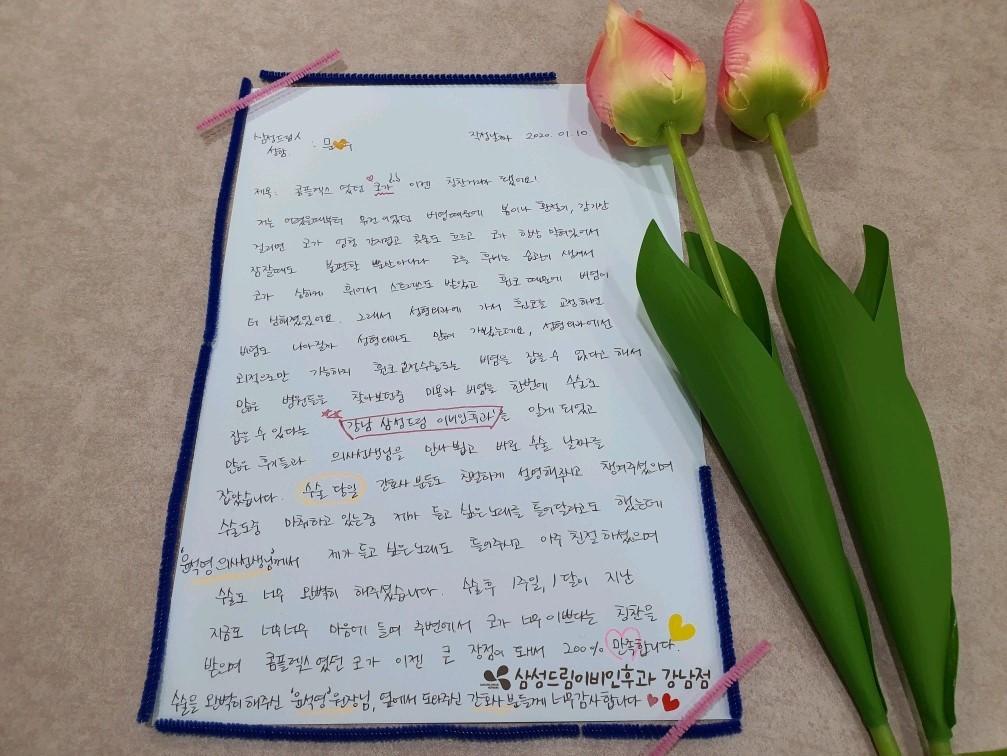 삼성드림人
성함 : 문
작성날짜 2020. 01. 10
제목: 콤플렉스 였던 코가 이젠 칭찬거리가 됐어요!
저는 어렸을때부터 유전이였던 비염때문에 봄이나 환절기, 감기만
걸리면 코가 엄청 간지럽고 콧물도 흐르고 코가 항상 막혀있어서
잠잘때도 불편할 뿐만아니라 코를 후비는 습관이 생겨서
코가 심하게 휘어서 스트레스도 받았고 휜코 때문에 비염이
더 심해졌었어요. 그래서 성형외과에 가서 휜코를 교정하면
비염도 나아질까 성형외과도 많이 가봤는데요, 성형외과에선
외적으로만 가능하지 휜코교정수술로는 비염을 잡을 수 없다고 해서
많은 병원들을 찾아보던중 미용과 비염을 한번에 수술로
잡을 수 있다는 '강남 삼성드림 이비인후과'를 알게 되었고
많은 후기들과 의사선생님을 만나 뵙고 바로 수술 날짜를
잡았습니다. 수술 당일 간호사 분들도 친절하게 설명해주시고 챙겨주셨으며
수술도중 마취하고 있는중 제가 듣고 싶은 노래를 틀어달라고도 했는데
'윤석영 의사선생님'께서 제가 듣고 싶은 노래도 틀어주시고 아주 친절 하셨으며
수술도 너무 완벽히 해주셨습니다. 수술후 1주일, 1달이 지난
지금도 너무너무 마음에 들며 주변에서 코가 너무 이쁘다는 칭찬을
받으며 콤플렉스 였던 코가 이젠 큰 장점이 되어서 200% 만족합니다.
삼성드림이비인후과 강남점
수술을 완벽히 해주신 '윤석영' 원장님, 옆에서 도와주신 간호사 분들께 너무감사합니다